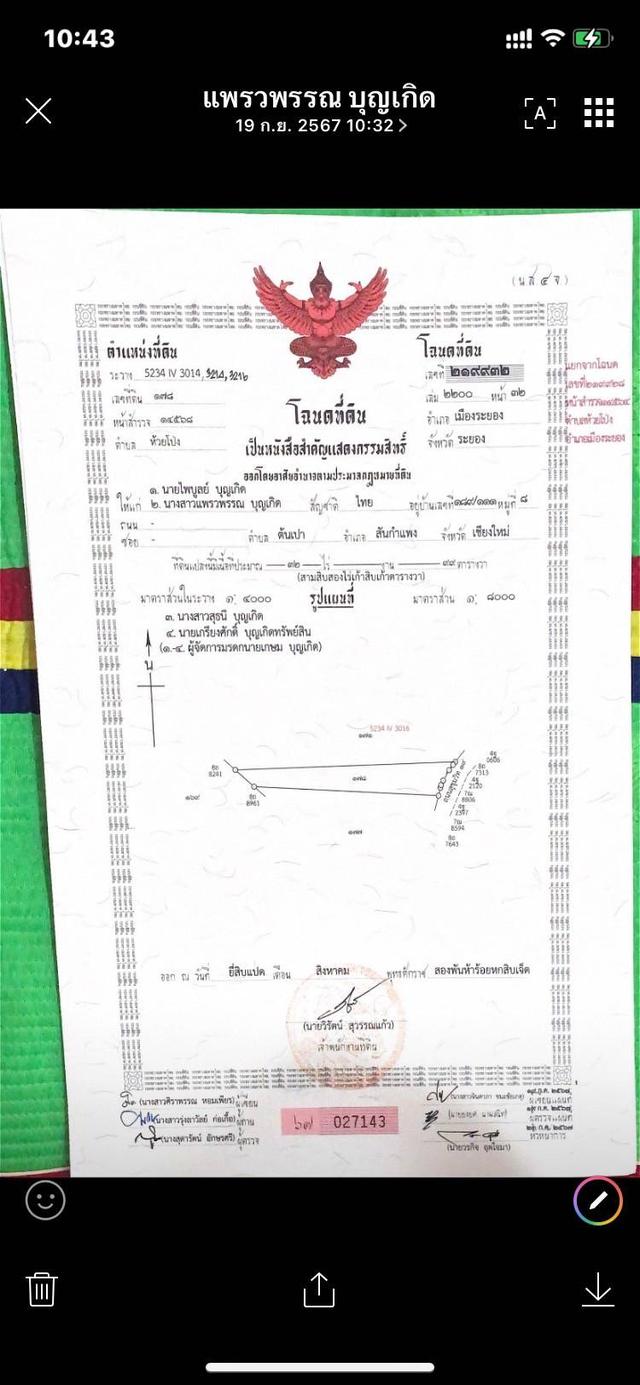 10:43
แพรวพรรณ บุญเกิด
19 ก.ย. 2567 10:32
(น ส ๔ จ)
ตำแหน่งที่ดิน
โฉนดที่ดิน
ระวาง 5234 IV 3014, 3214, 3216
เลขที่ ๒๑๙๙๓๒
แยกจากโฉนด
เลขที่ดิน ๑๗๘
เล่ม ๒๒๐๐ หน้า ๓๒
หน้าสำรวจ ๑๔๕๖๘
โฉนดที่ดิน
อำเภอ เมืองระยอง
ตำบลห้วยโป่ง
ตำบล ห้วยโป่ง
เป็นหนังสือสำคัญแสดงกรรมสิทธิ์
จังหวัด ระยอง
อำเภอเมืองระยอง
ออกโดยอาศัยอำนาจตามประมวลกฎหมายที่ดิน
๑. นายไพบูลย์ บุญเกิด
ให้แก่ ๒. นางสาวแพรวพรรณ บุญเกิด สัญชาติ ไทย อยู่บ้านเลขที่ ๑๘๙/๑๑๑ หมู่ที่ ๘
ถนน -
ซอย - ตำบล ต้นเปา อำเภอ สันกำแพง จังหวัด เชียงใหม่
ที่ดินแปลงนี้มีเนื้อที่ประมาณ ๓๒ ไร่ — งาน ๙๙ ตารางวา
(สามสิบสองไร่เก้าสิบเก้าตารางวา)
มาตราส่วนในระวาง ๑: ๔๐๐๐ รูปแผนที่ มาตราส่วน ๑: ๘๐๐๐
๓. นางสาวสุธนี บุญเกิด
๔. นายเกรียงศักดิ์ บุญเกิดทรัพย์สิน
(๑.-๔. ผู้จัดการมรดกนายเกษม บุญเกิด)
น
5234 IV 3016
๑๗๑
8241
๑๗๘
0606
7313
2120
8806
2347
8594
7643
๑๖๙
8961
๑๗๗
ออก ณ วันที่ ยี่สิบแปด เดือน สิงหาคม พุทธศักราช สองพันห้าร้อยหกสิบเจ็ด
(นายวิรัตน์ สุวรรณแก้ว)
เจ้าพนักงานที่ดิน
(นางสาวศิราพรรณ หอมเพียร) ผู้เขียน
(นางสาวรุ่งลาวัลย์ ก่อเกื้อ) ผู้ทาน
(นางสุดารัตน์ อักษรศรี) ผู้ตรวจ
๖๗ 027143